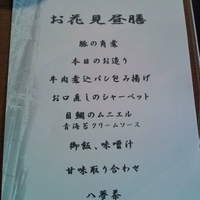 お花見昼膳
豚の角煮
本日のお造り
牛肉煮込パン包み揚げ
お口直しのシャーベット
目鯛のムニエル
青海苔クリームソース
御飯、味噌汁
甘味取り合わせ
八宝茶